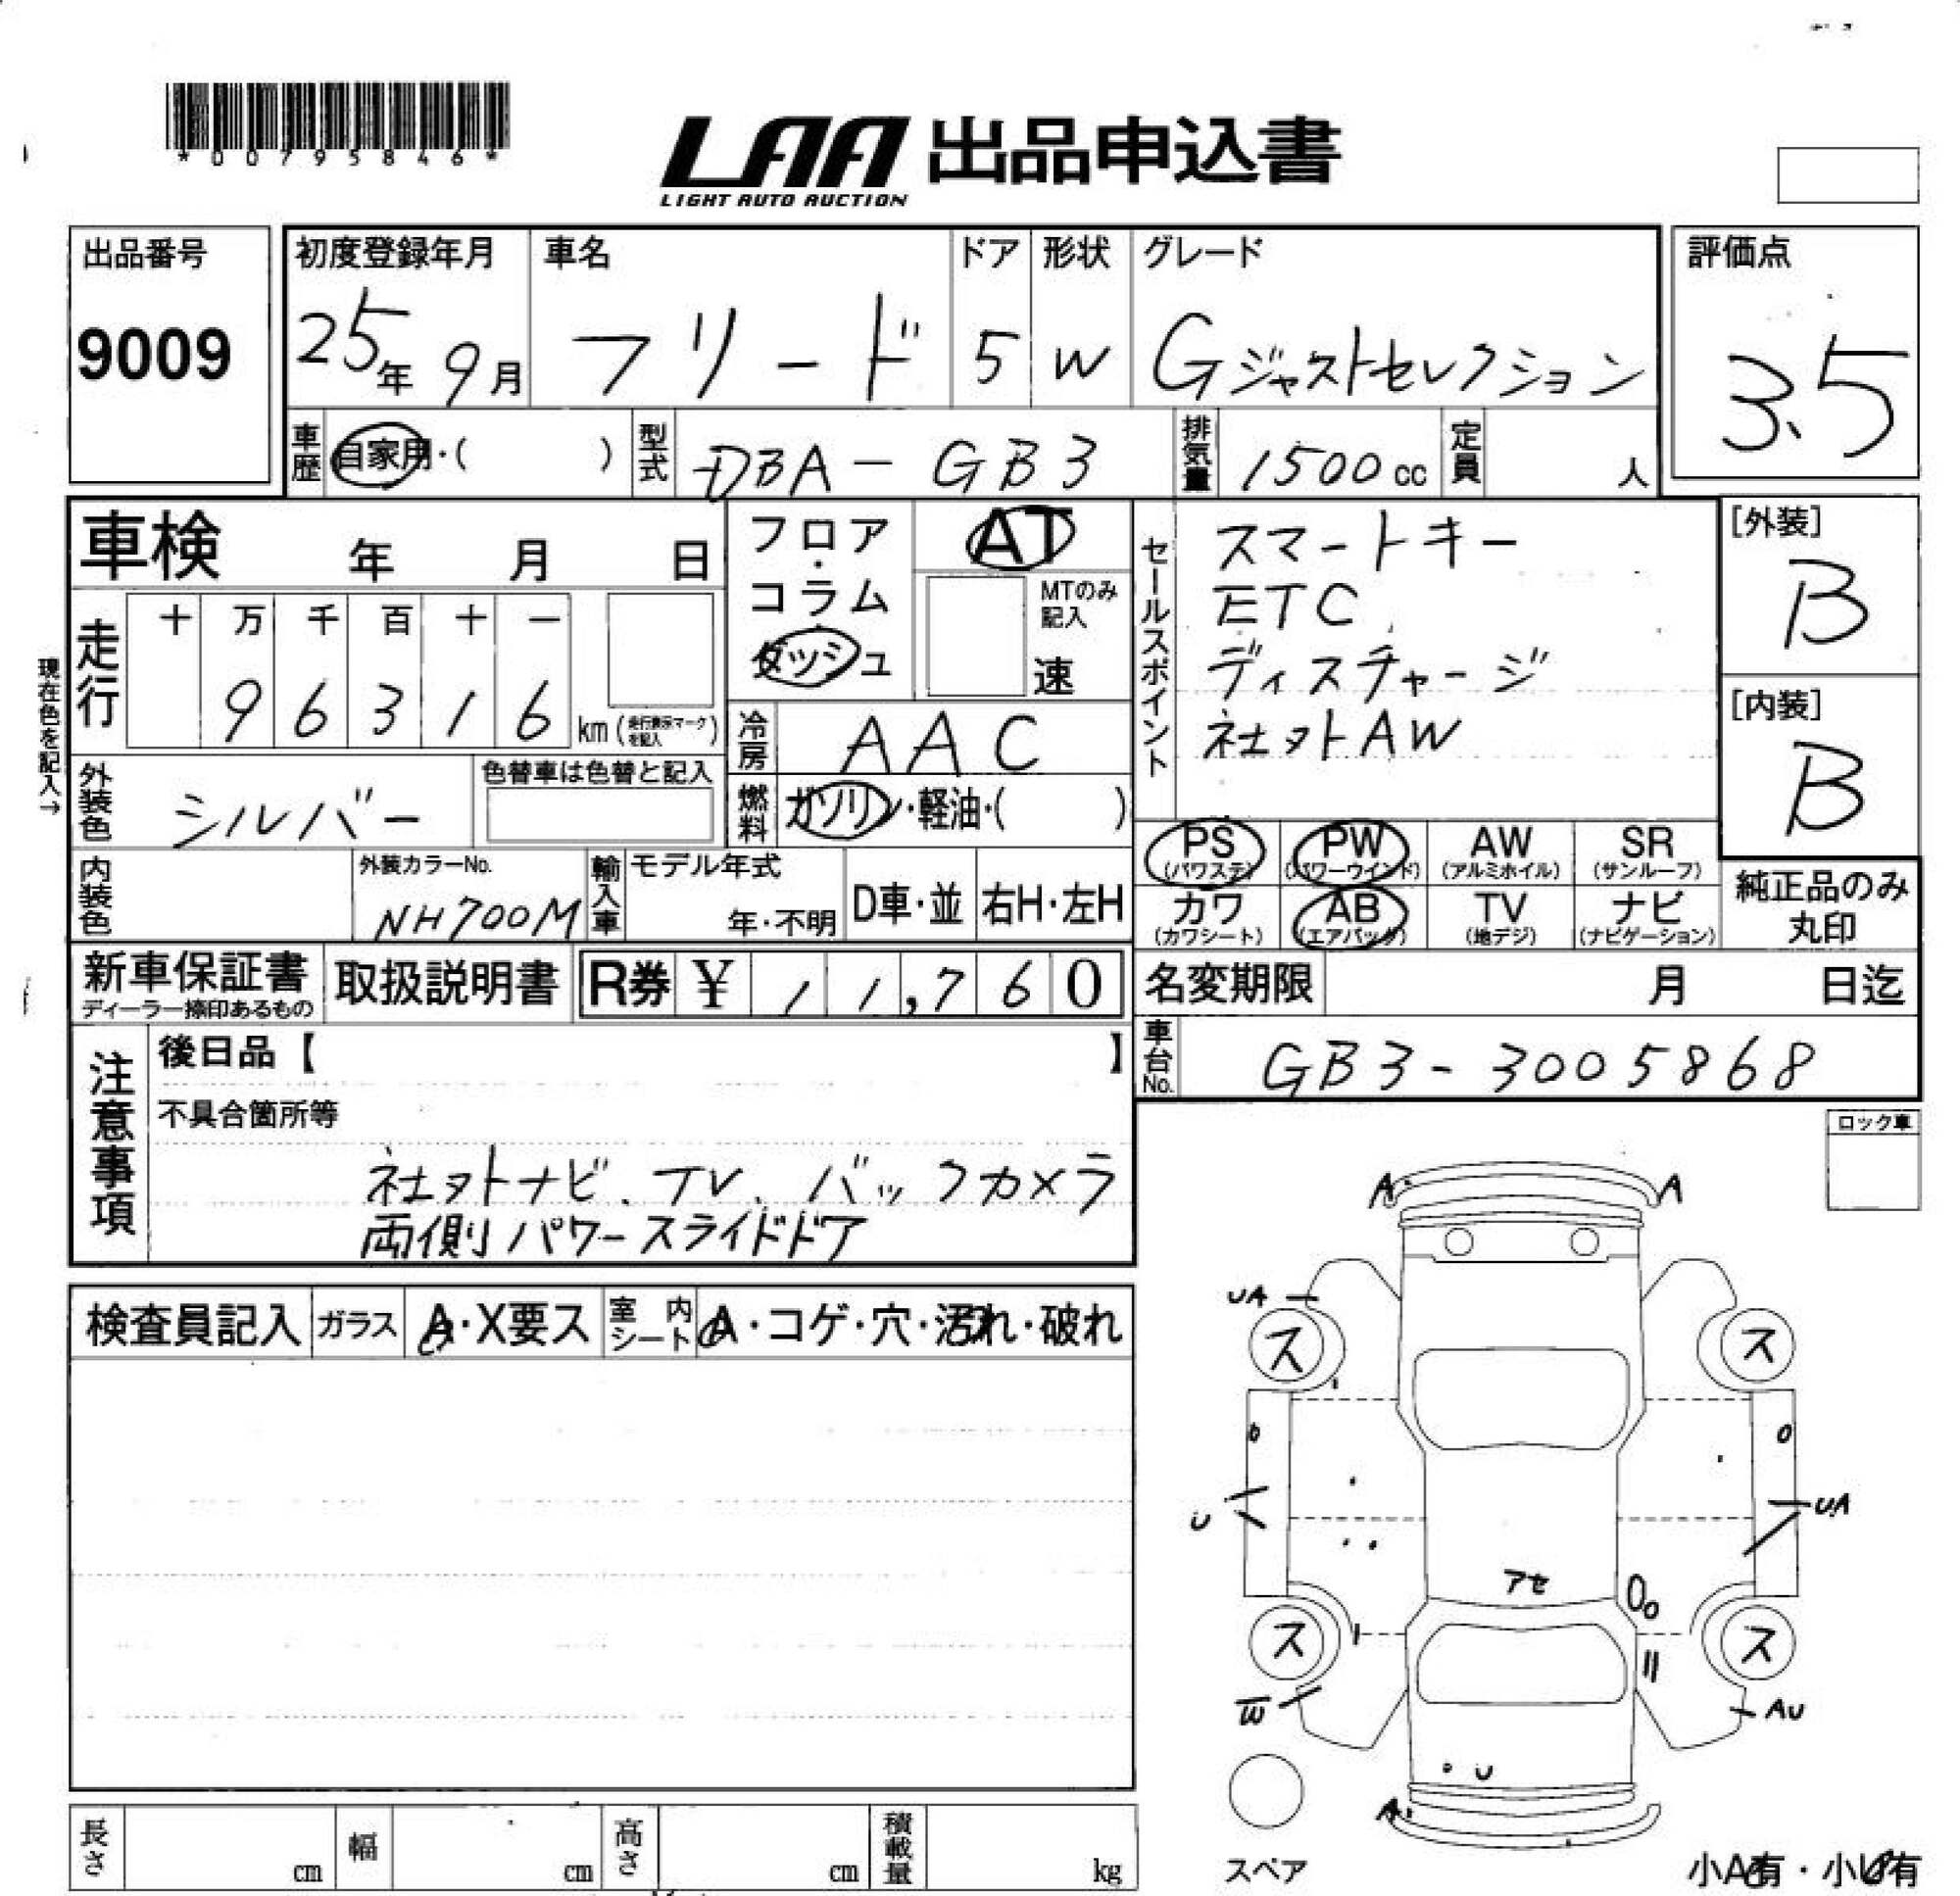 *00795846*
LAA 出品申込書
LIGHT AUTO AUCTION
出品番号
9009
初度登録年月
25年 9月
車名
フリード
ドア
5
形状
W
グレード
Gジャストセレクション
評価点
3.5
車歴
自家用・( )
型式
DBA-GB3
排気量
1500cc
定員
人
車検 年 月 日
フロア・コラム
ダッシュ
AT
MTのみ記入
速
セールスポイント
スマートキー
ETC
ディスチャージ
社外AW
[外装]
B
[内装]
B
現在色を記入→
走行
十 万 千 百 十 一
9 6 3 1 6 km (走行表示マークを記入)
冷房
AAC
外装色
シルバー
色替車は色替と記入
燃料
ガソリン・軽油・( )
PS (パワステ)
PW (パワーウインド)
AW (アルミホイル)
SR (サンルーフ)
カワ (カワシート)
AB (エアバッグ)
TV (地デジ)
ナビ (ナビゲーション)
純正品のみ
丸印
内装色
外装カラーNo.
NH700M
輸入車
モデル年式
年・不明
D車・並
右H・左H
新車保証書
ディーラー捺印あるもの
取扱説明書
R券 ¥ 11,760
名変期限 月 日迄
車台No.
GB3-3005868
注意事項
後日品【 】
不具合箇所等
社外ナビ、TV、バックカメラ
両側パワースライドドア
ロック車
検査員記入
ガラス
A・X要ス
室内シート
A・コゲ・穴・汚れ・破れ
A A
UA
ス ス
U
UA
アセ
ス ス
W
AU
U
A
スペア
小A有・小U有
長さ cm
幅 cm
高さ cm
積載量 kg